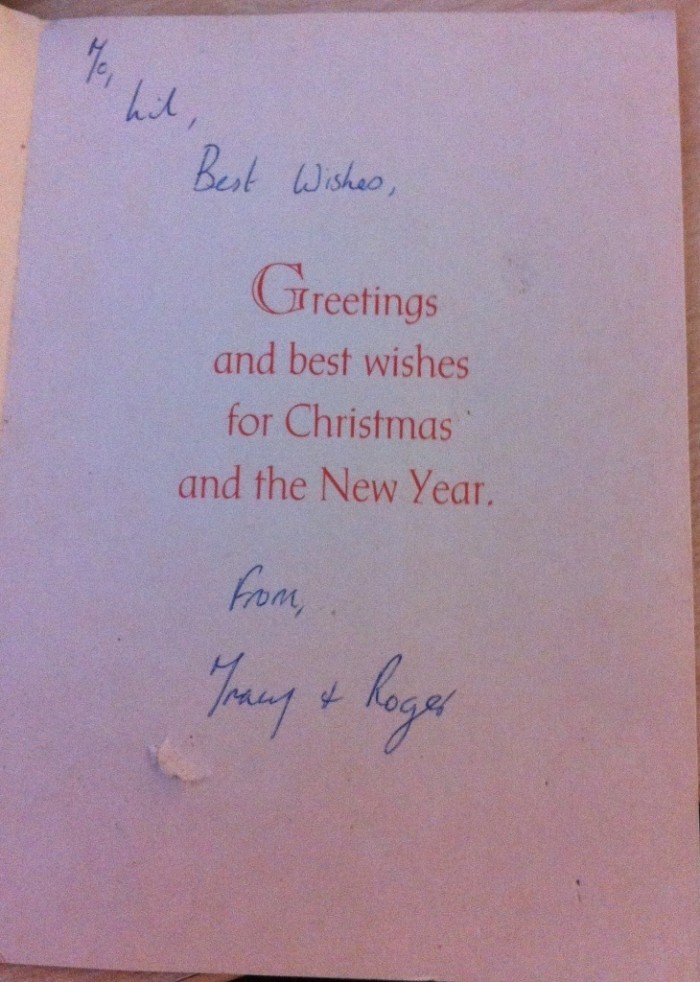 To,
Lil,
Best Wishes,
Greetings
and best wishes
for Christmas
and the New Year.
From,
Tracy + Roger